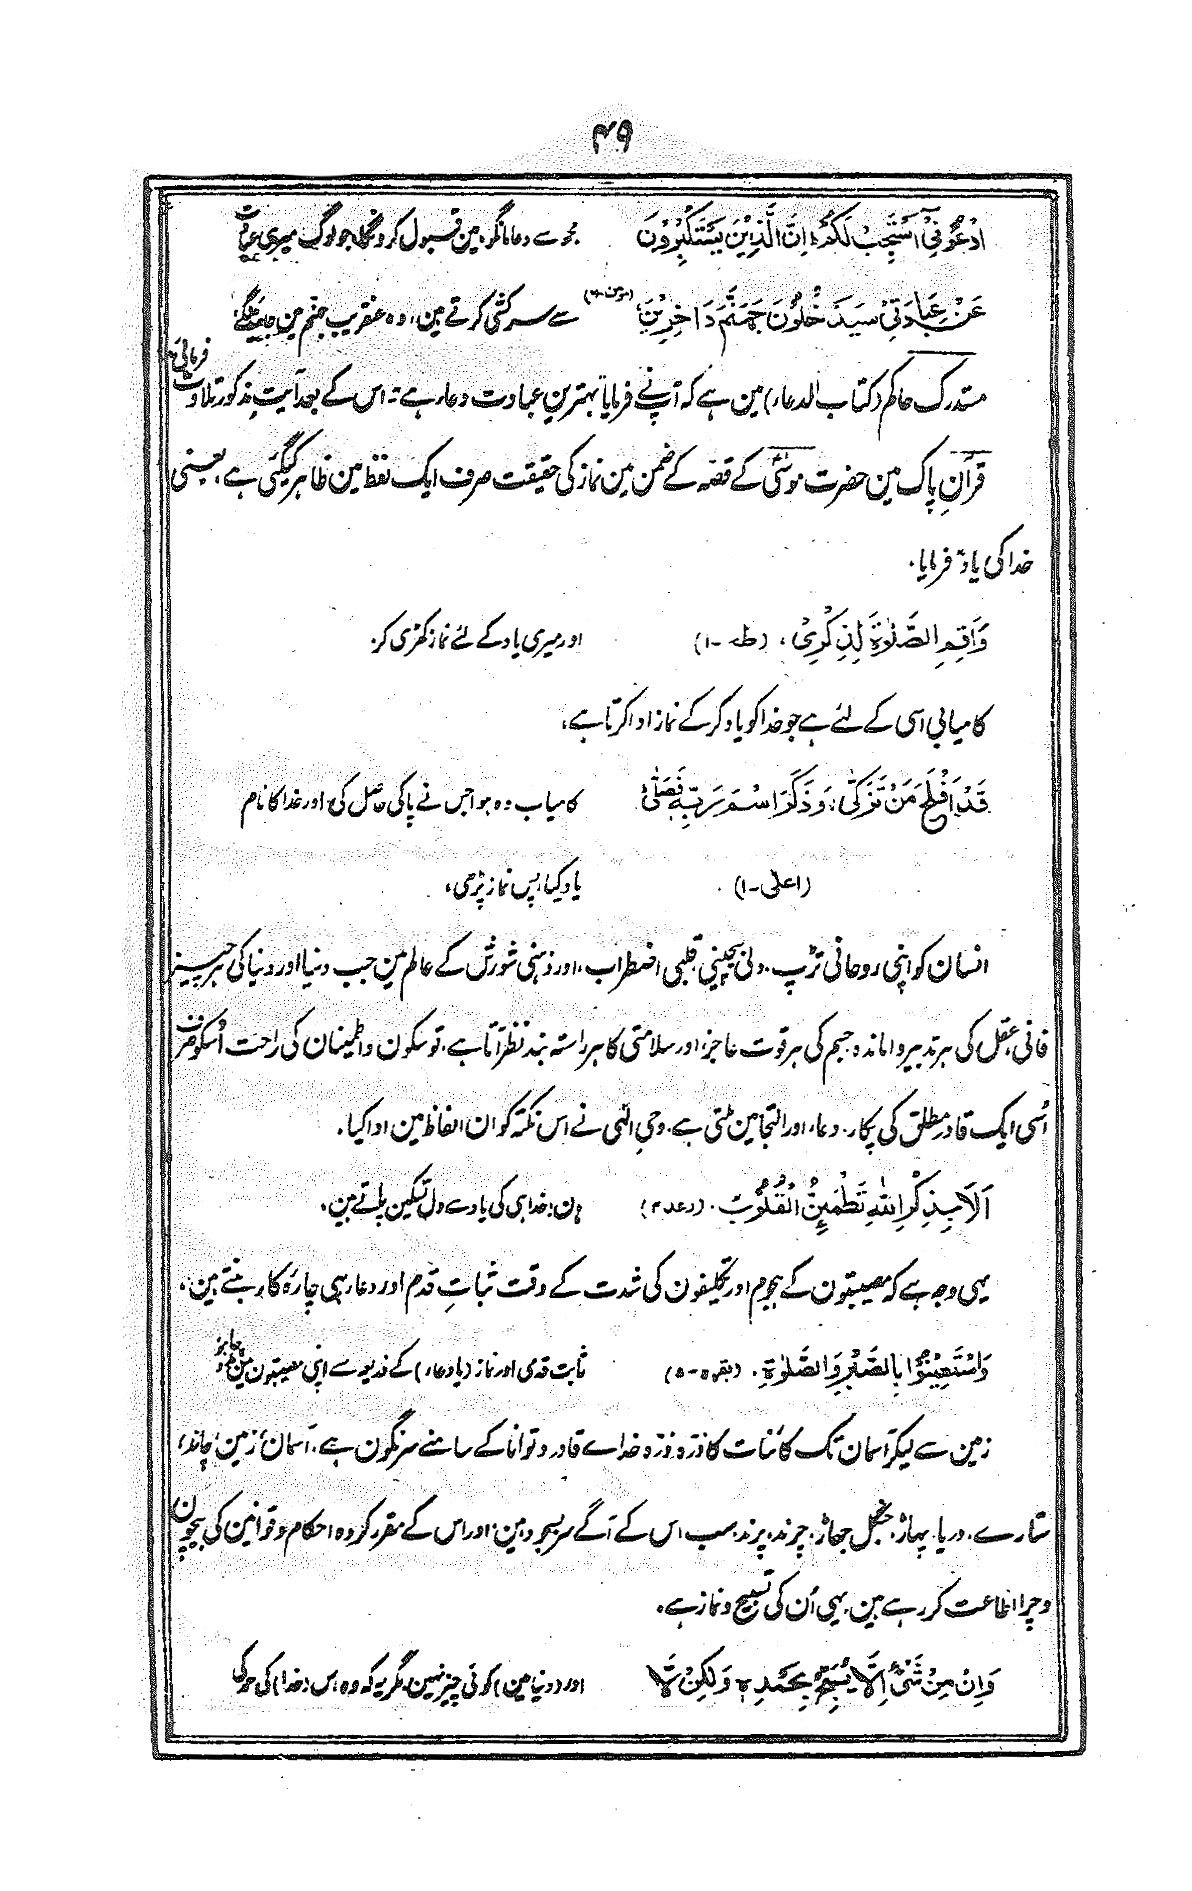 ۴۹
ادْعُوْنِیْٓ اَسْتَجِبْ لَكُمْ ؕ اِنَّ الَّذِیْنَ یَسْتَكْبِرُوْنَ مجھ سے دعا مانگو، مین قبول کرونگا، جو لوگ میری عبادت
عَنْ عِبَادَتِیْ سَیَدْخُلُوْنَ جَهَنَّمَ دَاخِرِیْنَ (مومن-۶) سے سرکشی کرتے ہین، وہ عنقریب جہنم مین جائینگے،
مستدرک حاکم (کتاب الدعاء) مین ہے کہ آپ نے فرمایا "بہترین عبادت دعا، ہے" اس کے بعد آیت مذکور تلاوت فرمائی،
قرآن پاک مین حضرت موسیٰؑ کے قصہ کے ضمن مین نماز کی حقیقت صرف ایک لفظ مین ظاہر کیگئی ہے، یعنی
خدا کی یاد" فرمایا۔
وَاَقِمِ الصَّلٰوةَ لِذِكْرِیْ، (طہ-۱) اور میری یاد کے لئے نماز کھڑی کر۔
کامیابی اسی کے لئے ہے جو خدا کو یاد کر کے نماز ادا کرتا ہے،
قَدْ اَفْلَحَ مَنْ تَزَكّٰی، وَذَكَرَ اسْمَ رَبِّهٖ فَصَلّٰی کامیاب وہ ہوا جس نے پاکی حاصل کی، اور خدا کا نام
(اعلیٰ-۱) یاد کیا، پس نماز پڑھی،
انسان کو اپنی روحانی تڑپ، دلی بیچینی قلبی اضطراب، اور ذہنی شورش کے عالم مین جب دنیا اور دنیا کی ہر چیز
فانی، عقل کی ہر تدبیر واماندہ، جسم کی ہر قوت عاجز، اور سلامتی کا ہر راستہ بند نظر آتا ہے، تو سکون و اطمینان کی راحت اُسکو صرف
اُسی ایک قادر مطلق کی پکار، دعاء، اور التجا مین ملتی ہے، وحی الٰہی نے اس نکتہ کو ان الفاظ مین ادا کیا۔
اَلَا بِذِكْرِ اللّٰهِ تَطْمَئِنُّ الْقُلُوْبُ۔ (رعد ۴) ہان! خدا ہی کی یاد سے دل تسکین پاتے ہین۔
یہی وجہ ہے کہ مصیبتون کے ہجوم اور تکلیفون کی شدت کے وقت ثباتِ قدم اور دعا، ہی چارۂ کار بنتے ہین،
وَاسْتَعِیْنُوْا بِالصَّبْرِ وَالصَّلٰوةِ۔ (بقرہ-۵) ثابت قدمی اور نماز (یا دعاء) کے ذریعہ سے اپنی مصیبتون مین مدد چاہو
زمین سے لیکر آسمان تک کائنات کا ذرہ ذرہ خداے قادر و توانا کے سامنے سرنگون ہے، آسمان، زمین، چاند،
ستارے، دریا، پہاڑ، جنگل جھاڑ، چرند، پرند سب اس کے آگے سربسجود ہین، اور اس کے مقرر کردہ احکام و قوانین کی بیچون
وچرا اطاعت کر رہے ہین، یہی اُن کی تسبیح و نماز ہے۔
وَاِنْ مِّنْ شَیْءٍ اِلَّا یُسَبِّحُ بِحَمْدِهٖ وَلٰكِنْ لَّا اور (دنیا مین) کوئی چیز نہین، مگر یہ کہ وہ اس (خدا) کی حمد کی